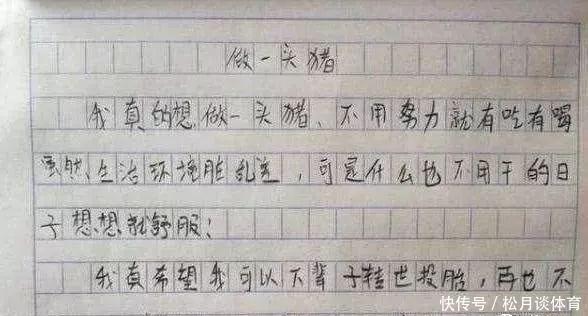 做一头猪
我真的想做一头猪、不用努力就有吃有喝
虽然、生活环境脏乱差,可是什么也不用干的日
子想想就舒服;
我真希望我可以下辈子转世投胎,再也不
快传号/松月谈体育